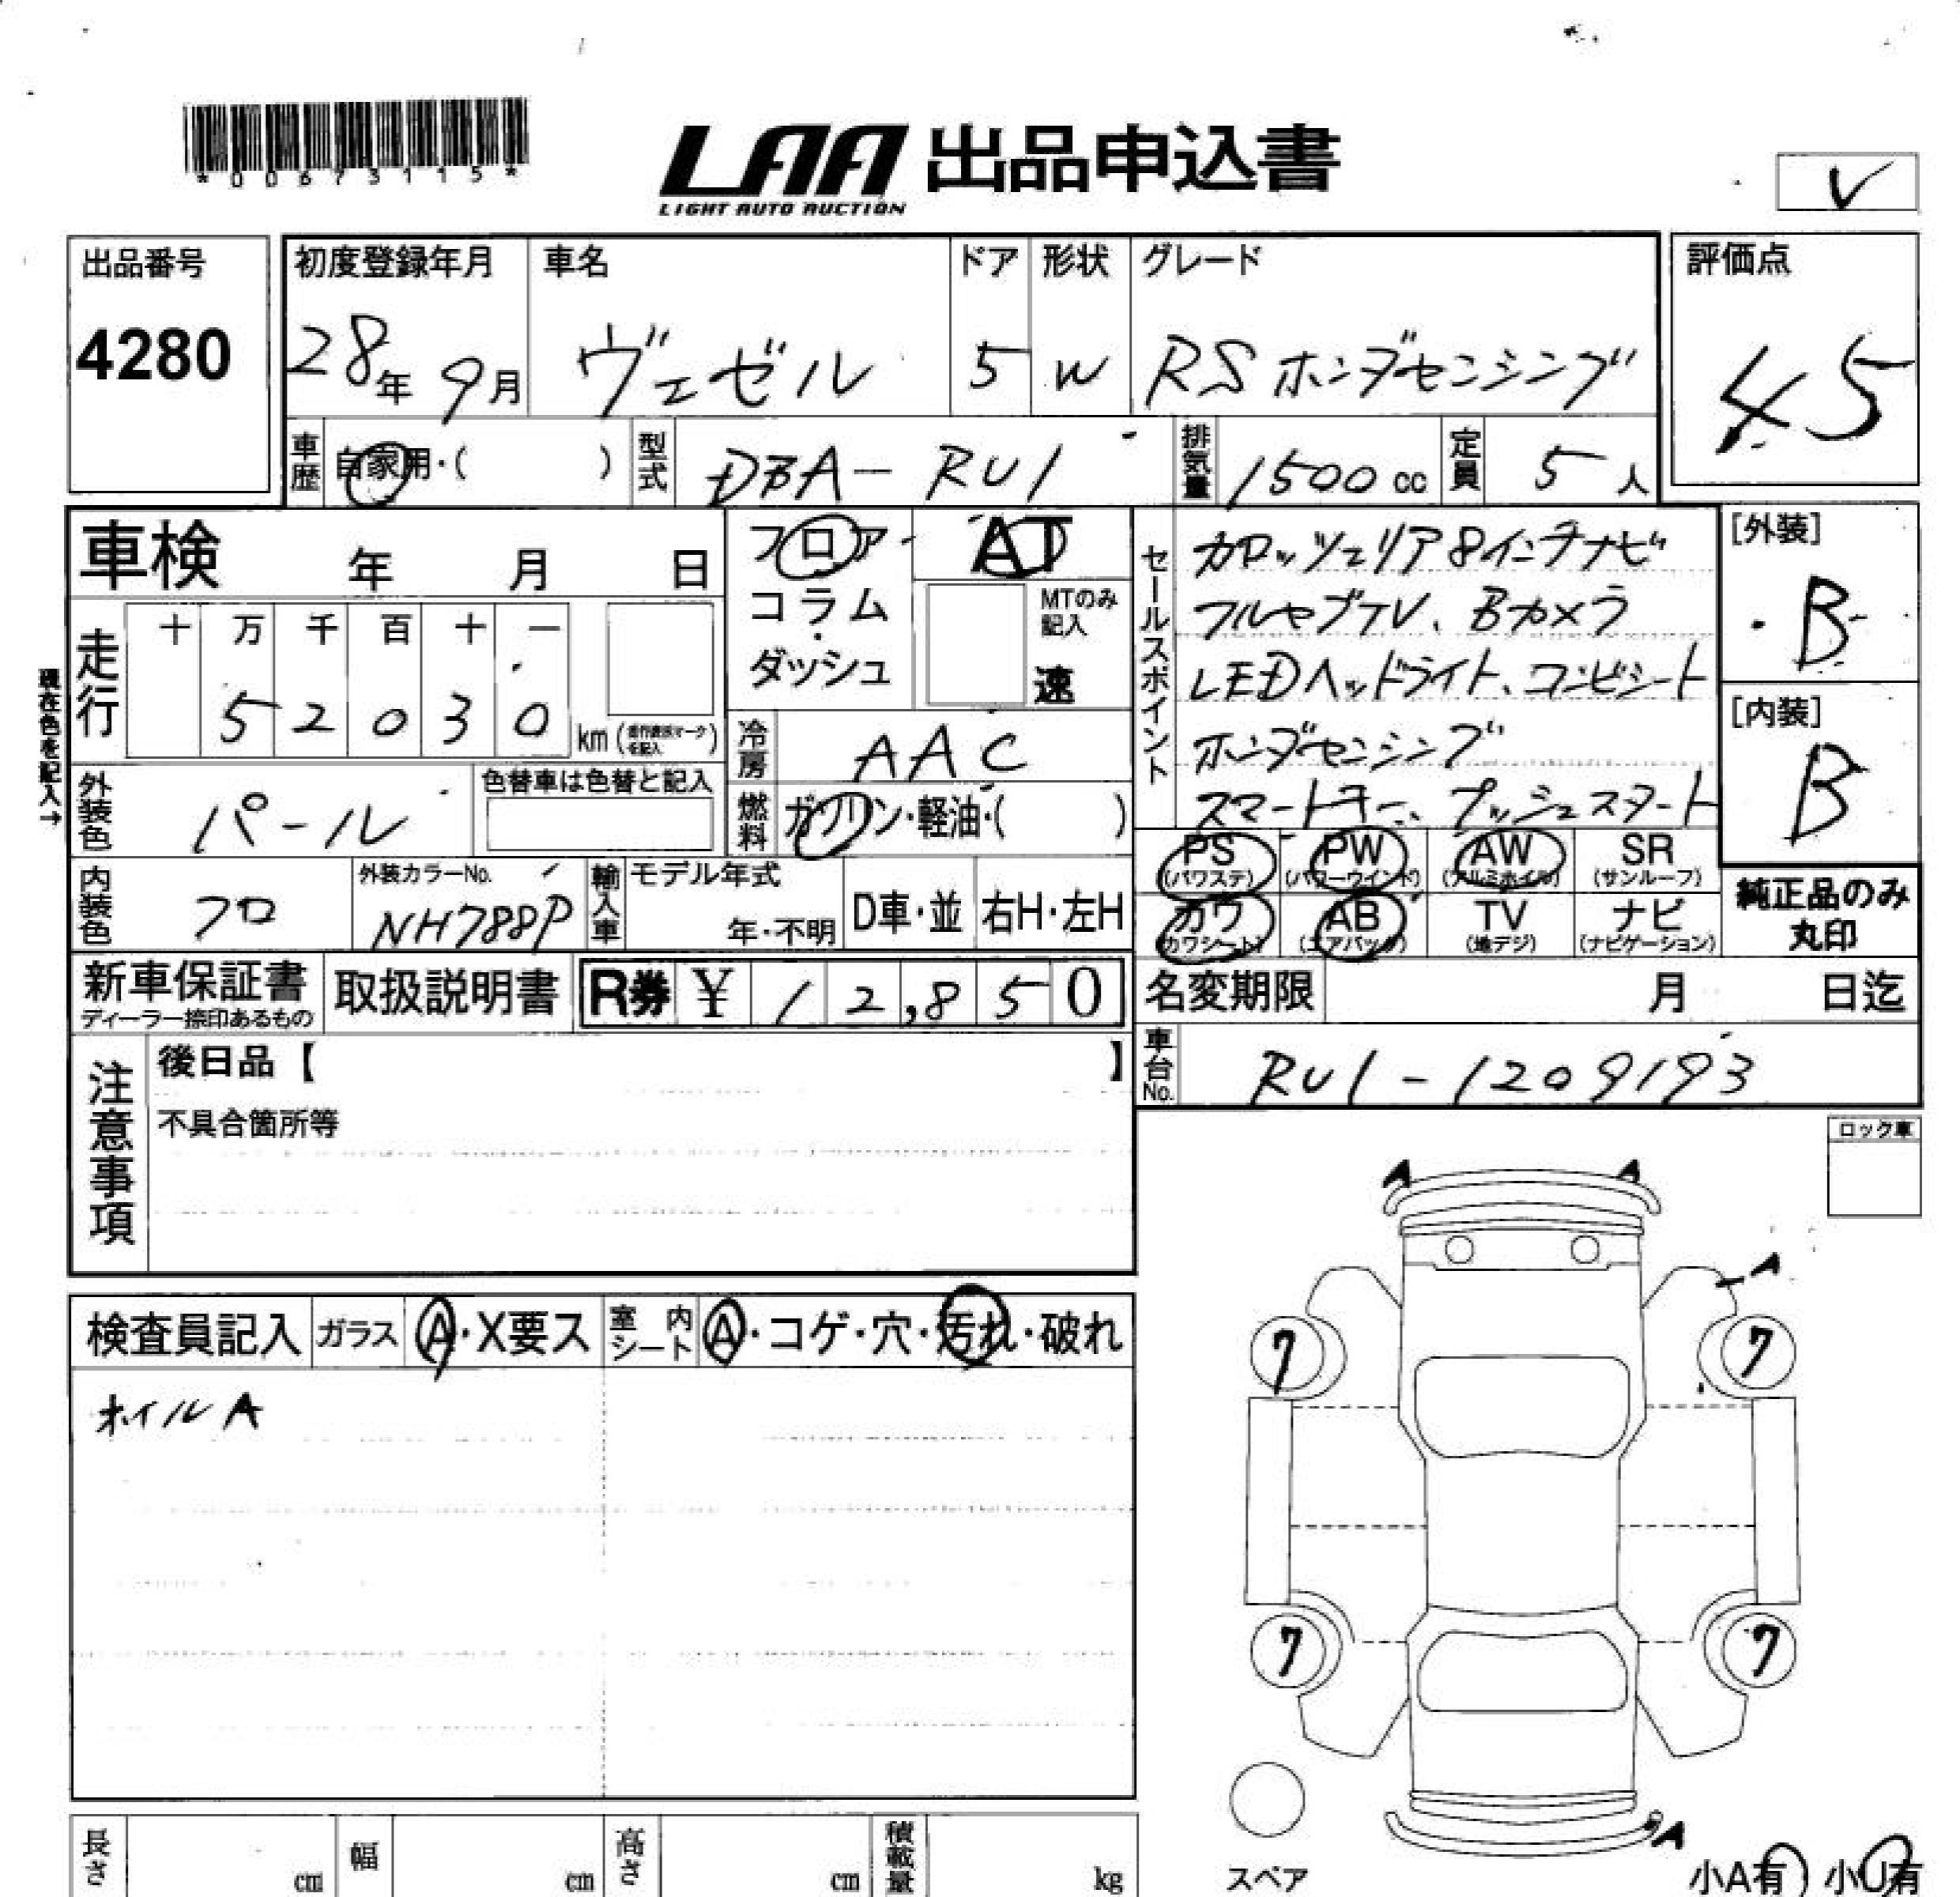 *00673115*
LAA 出品申込書
LIGHT AUTO AUCTION
V
出品番号
4280
初度登録年月 車名 ドア 形状 グレード
28年9月 ヴェゼル 5 W RSホンダセンシング
評価点
4.5
車歴 自家用・( ) 型式 DBA-RU1 排気量 1500cc 定員 5人
車検 年 月 日
フロア・コラム・ダッシュ
AT
MTのみ記入
速
セールスポイント
カロッツェリア8インチナビ
フルセグTV、Bカメラ
LEDヘッドライト、コンビシート
ホンダセンシング
スマートキー、プッシュスタート
[外装]
B
[内装]
B
現在色を記入→
走行 十 万 千 百 十 一
52030 km
冷房 AAC
外装色 パール 色替車は色替と記入
燃料 ガソリン・軽油・( )
内装色 クロ 外装カラーNo. NH788P
輸入車 モデル年式 年・不明 D車・並 右H・左H
PS(パワステ) PW(パワーウインド) AW(アルミホイル) SR(サンルーフ)
カワ(カワシート) AB(エアバック) TV(地デジ) ナビ(ナビゲーション)
純正品のみ丸印
新車保証書 ディーラー捺印あるもの
取扱説明書 R券 ¥12,850
名変期限 月 日迄
車台No. RU1-1209193
注意事項
後日品【 】
不具合箇所等
ロック車
検査員記入 ガラス A・X要ス 室内シート A・コゲ・穴・汚れ・破れ
ホイルA
A A
A
7 7
7 7
A
スペア
小A有 小U有
長さ cm 幅 cm 高さ cm 積載量 kg